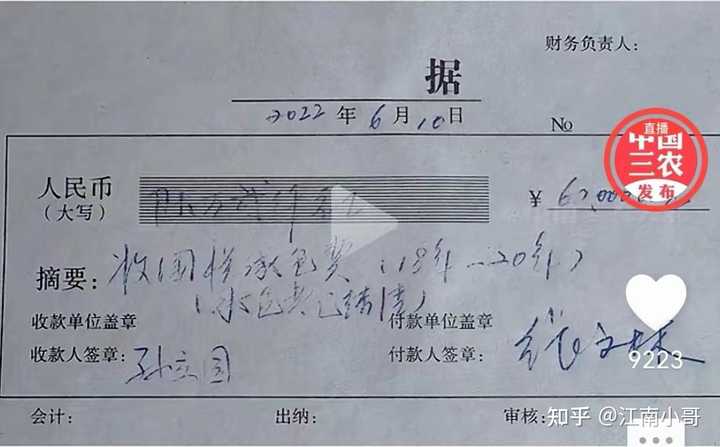 财务负责人:
据
2022年6月10日
No
直播
中国
三农
发布
人民币
(大写)
¥
摘要: 收国样承包费(18年—20年)
(承包费已结清)
收款单位盖章
付款单位盖章
收款人签章: 孙立国
付款人签章:
9223
会计:
出纳:
审核:
知乎 @江南小哥